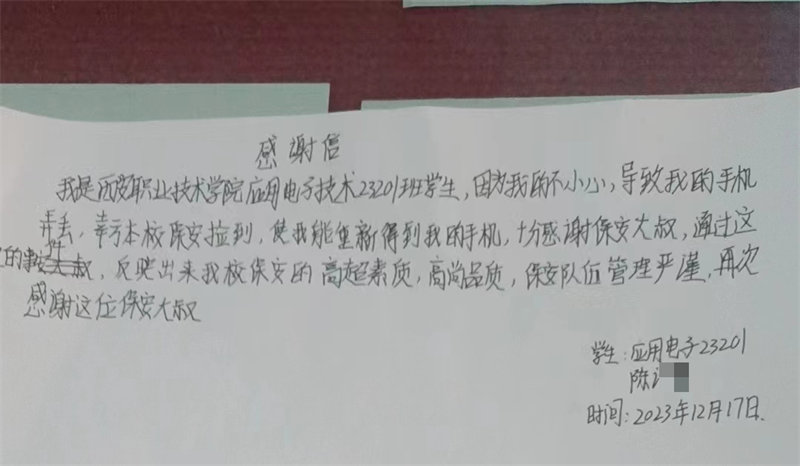 感谢信
我是西安职业技术学院应用电子技术23201班学生，因为我的不小心，导致我的手机
弄丢，幸亏本校保安捡到，使我能重新得到我的手机，十分感谢保安大叔，通过这
次的事件，反映出来我校保安的高超素质，高尚品质，保安队伍管理严谨，再次
感谢这位保安大叔
学生：应用电子23201
陈
时间：2023年12月17日.